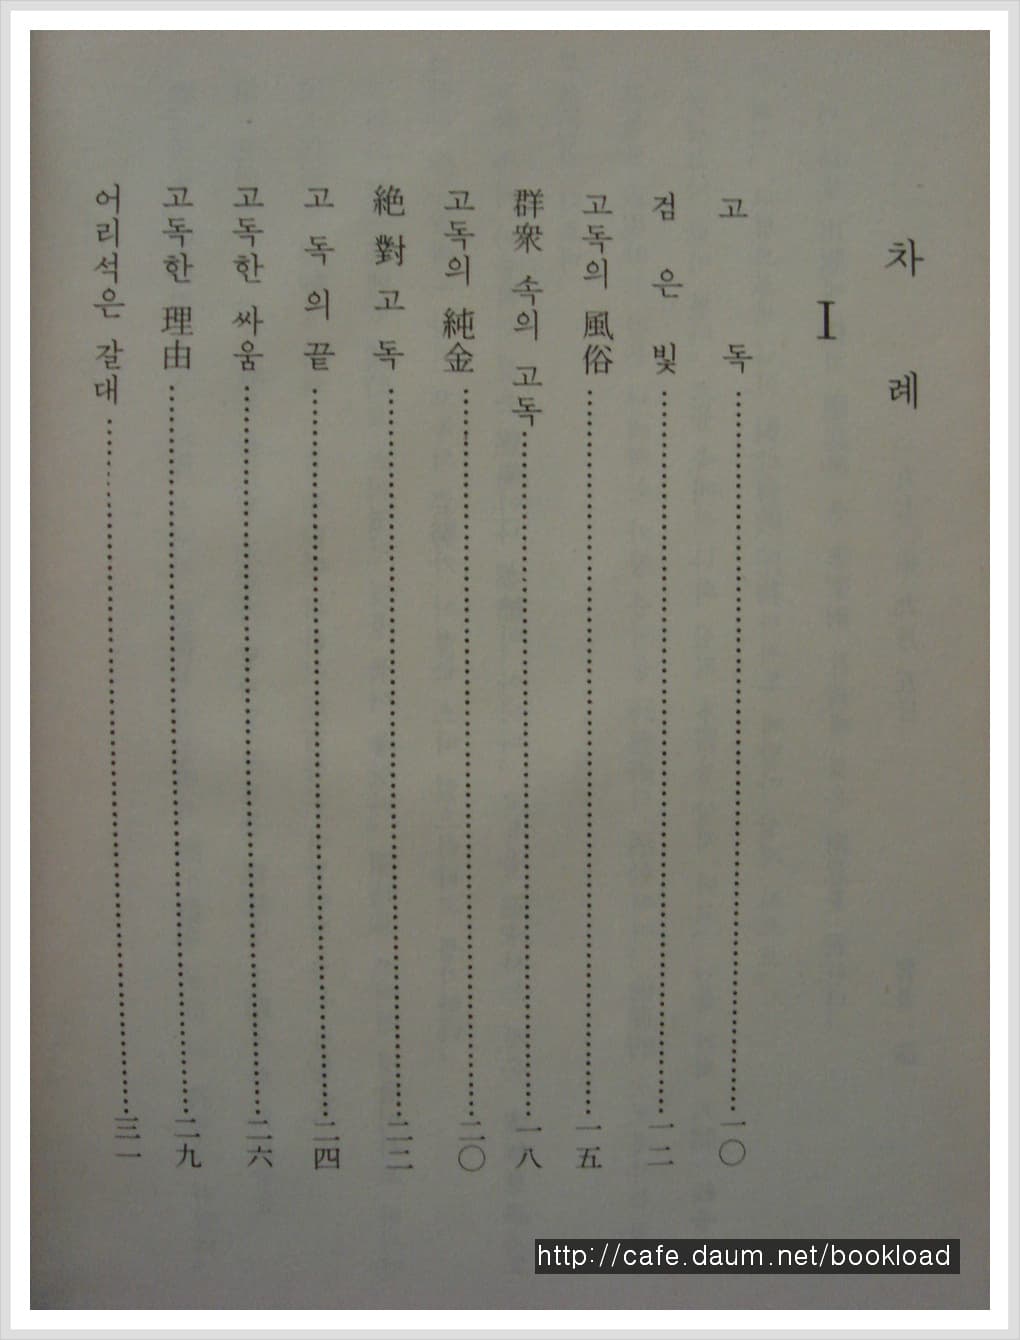 차례
I
고독 一〇
검은 빛 一二
고독의 風俗 一五
群衆 속의 고독 一八
고독의 純金 二〇
絶對고독 二二
고독의 끝 二四
고독한 싸움 二六
고독한 理由 二九
어리석은 갈대 三一
http://cafe.daum.net/bookload